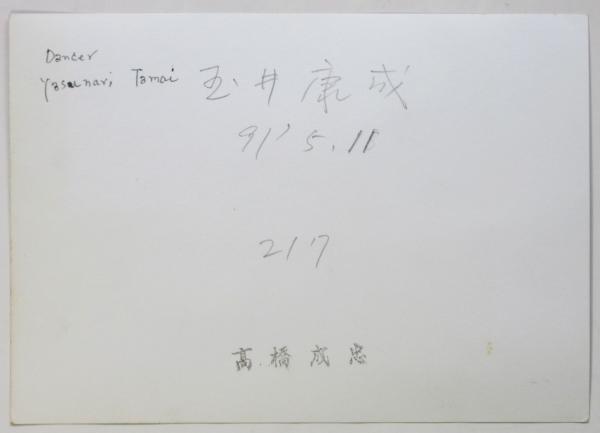 Dancer
Yasunari Tamai 玉井康成
91' 5.11
217
高橋成忠